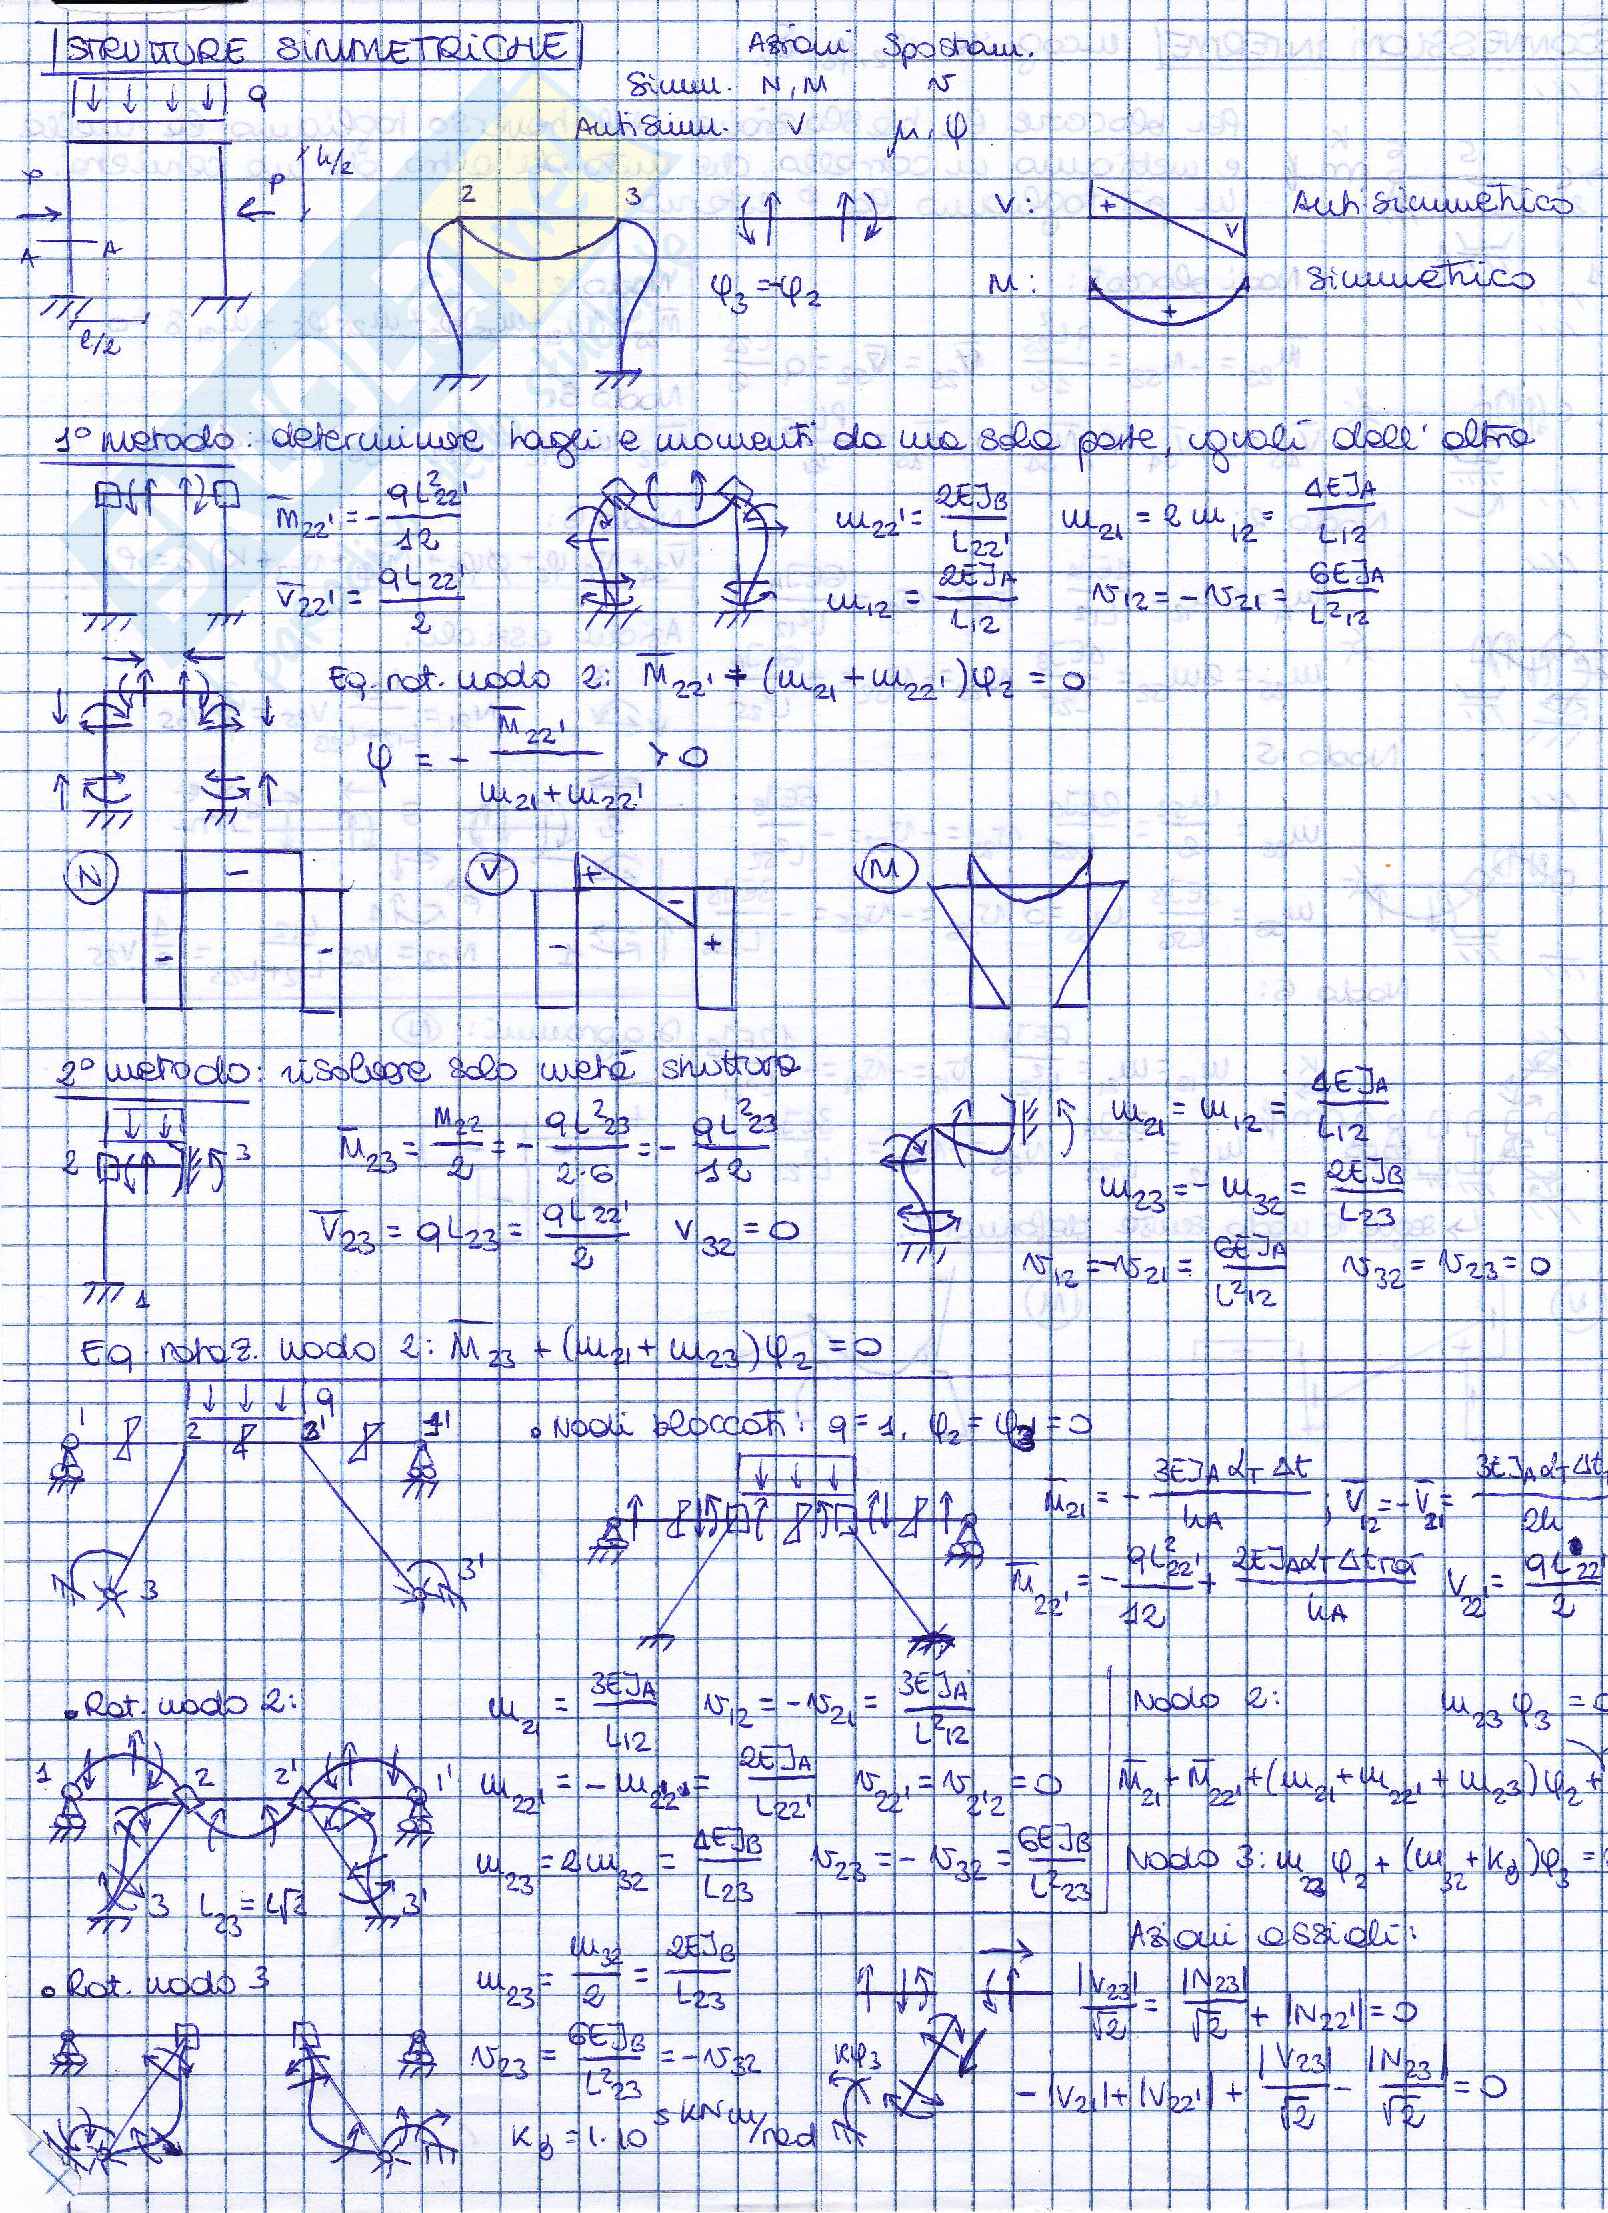 STRUTTURE SIMMETRICHE
Azioni Spostam.
Simm. N, M v
Antisimm. V μ, φ
q
h/2
P P
A A
l/2
2 3
φ3 = -φ2
V: + V Antisimmetrico
M: + Simmetrico
1° metodo: determinare tagli e momenti da una sola parte, uguali dall'altra
M̅22' = - qL²22' / 12
V̅22' = qL22' / 2
m22' = 2EJB / L22' m21 = 2 m12 = 4EJA / L12
m12 = 2EJA / L12 v12 = - v21 = 6EJA / L²12
Eq. rot. nodo 2: M̅22' + (m21 + m22')φ2 = 0
φ = - M̅22' / (m21 + m22') > 0
N V M
- - -
+ - - +
2° metodo: risolvere solo metà struttura
2 3 1
M̅23 = M22 / 2 = - qL²23 / 2·6 = - qL²23 / 12
V̅23 = qL23 = qL22' / 2 V32 = 0
m21 = m12 = 4EJA / L12
m23 = - m32 = 2EJB / L23
v12 = - v21 = 6EJA / L²12 v32 = v23 = 0
Eq. rotaz. nodo 2: M̅23 + (m21 + m23)φ2 = 0
q
1 2 1'
3 3'
• Nodi bloccati: q = 1, φ2 = φ3 = 0
M̅21 = - 3EJA αT Δt / hA ; V̅12 = - V̅21 = 3EJA αT Δt / 2h
M̅22' = - qL²22' / 12 + 2EJA αT Δt / hA V22' = qL22' / 2
• Rot. nodo 2:
1 2 2' 1'
3 L23 = L√2 3'
m21 = 3EJA / L12 v12 = - v21 = 3EJA / L²12
m22' = - m22' = 2EJA / L22' v22' = v2'2 = 0
m23 = 2 m32 = 4EJB / L23 v23 = - v32 = 6EJB / L²23
Nodo 2: m23 φ3 = 0
M̅21 + M̅22' + (m21 + m22' + m23)φ2 +
Nodo 3: m23 φ2 + (m32 + kθ)φ3 =
• Rot. nodo 3
m23 = m32 / 2 = 2EJB / L23
v23 = 6EJB / L²23 = - v32
kθ = 1·10⁵ kNm/rad
kφ3
Azioni assiali:
|V23| / √2 = |N23| / √2 + |N22'| = 0
- |V21| + |V22'| + |V23| / √2 - |N23| / √2 = 0